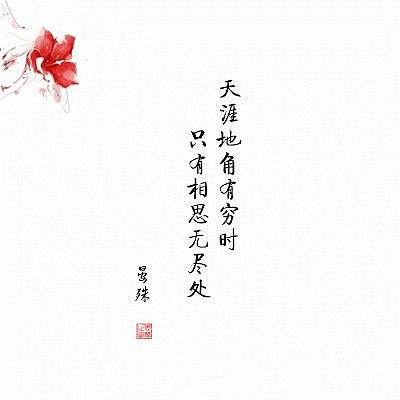 天涯地角有穷时
只有相思无尽处
晏殊